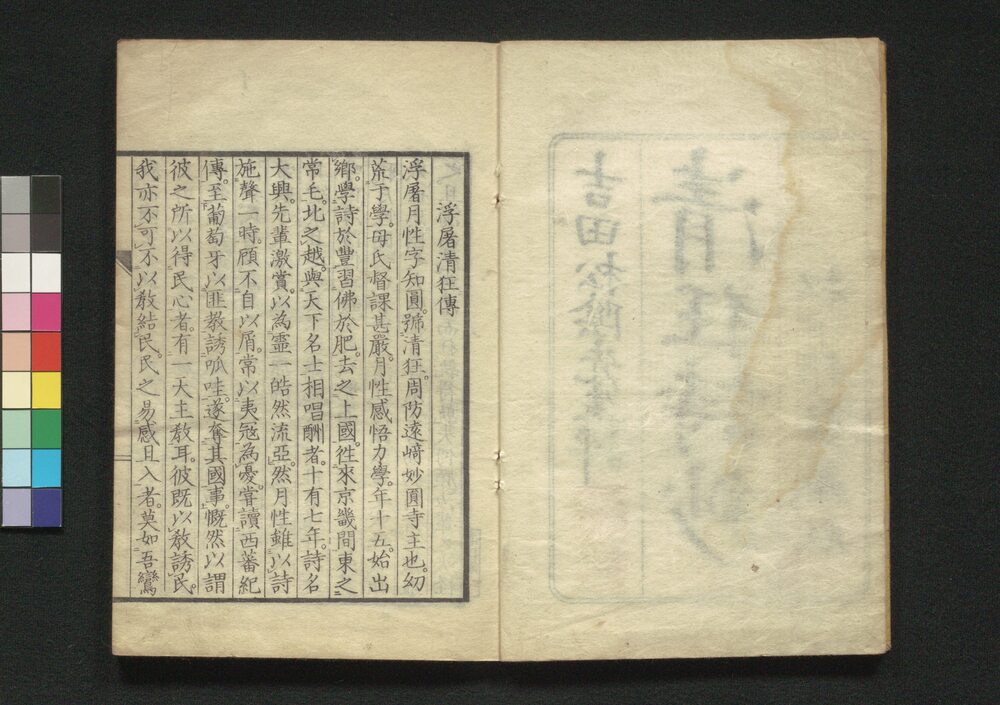 浮屠清狂傳
浮屠月性字知圓。號清狂。周防遠﨑妙圓寺主也。幼
荒于學。母氏督課甚嚴。月性感悟力學。年十五。始出
鄕。學詩於豐。習佛於肥。去之上國。徃來京畿間。東之
常毛。北之越。與天下名士相唱酬者。十有七年。詩名
大興。先輩激賞。以為靈一皓然流亞。然月性雖以詩
施聲一時。顧不自以屑。常以夷冦為憂。嘗讀西蕃紀
傳。至葡萄牙以匪教誘呱哇。遂奪其國事。慨然以謂
彼之所以得民心者。有一天主教耳。彼既以教誘民。
我亦不可不以教結民。民之易感且入者。莫如吾鸞